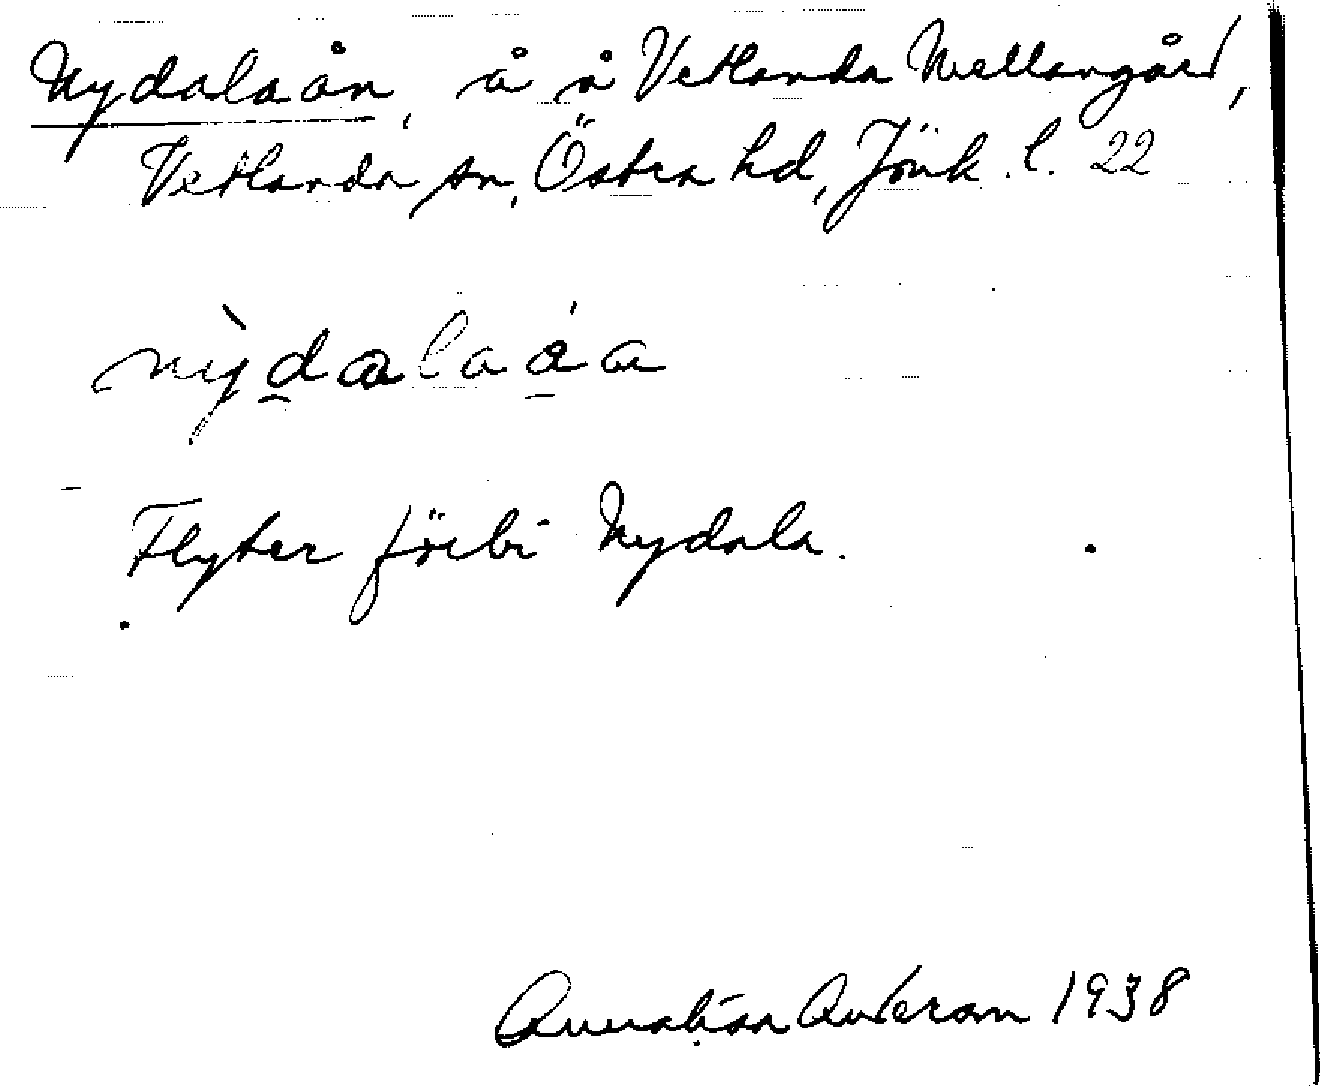 Nydalaån, å å Vetlanda Mellangård,
Vetlanda sn, Östra hd, Jönk. l. 22
nỳdalaáa
Flyter förbi Nydala.
Anderson 1938